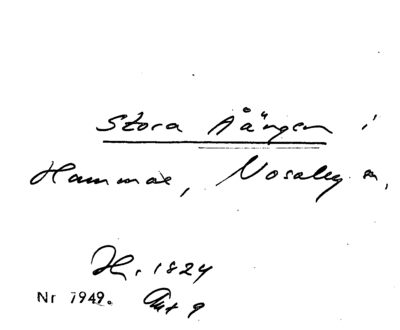 Stora Åängen i
Hammar, Nosaby sn,
H. 1824
Nr 7949. Akt 9